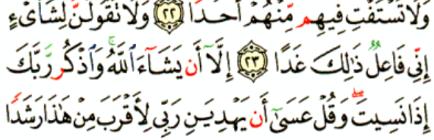 وَلَا تَسْتَفْتِ فِيهِم مِّنْهُمْ أَحَدًا ٢٢ وَلَا تَقُولَنَّ لِشَا۟ىْءٍ
إِنِّى فَاعِلٌ ذَٰلِكَ غَدًا ٢٣ إِلَّآ أَن يَشَآءَ ٱللَّهُ ۚ وَٱذْكُر رَّبَّكَ
إِذَا نَسِيتَ وَقُلْ عَسَىٰٓ أَن يَهْدِيَنِ رَبِّى لِأَقْرَبَ مِنْ هَٰذَا رَشَدًا